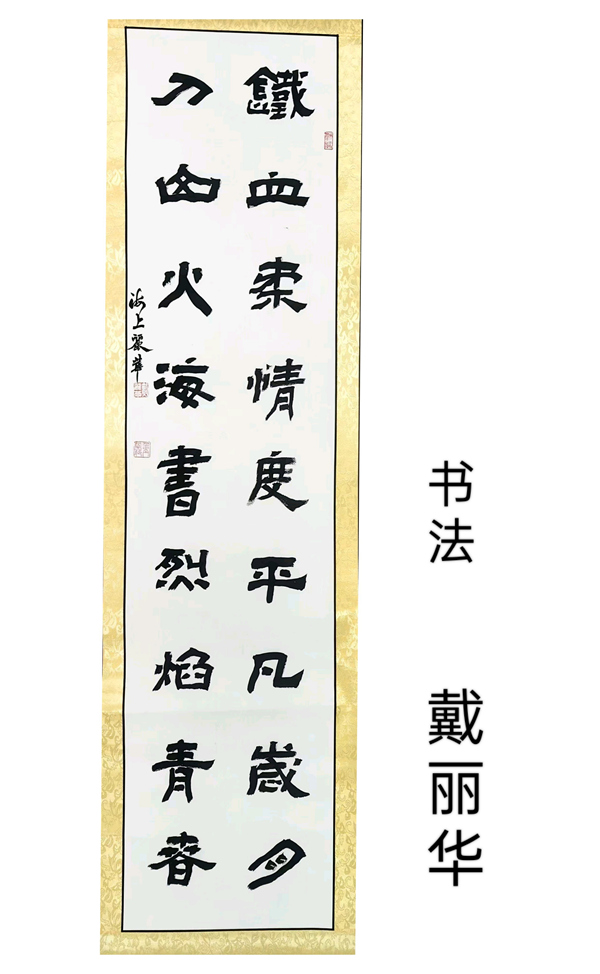 鐵血柔情度平凡歲月
刀山火海書烈焰青春
海上麗華
书法 戴丽华